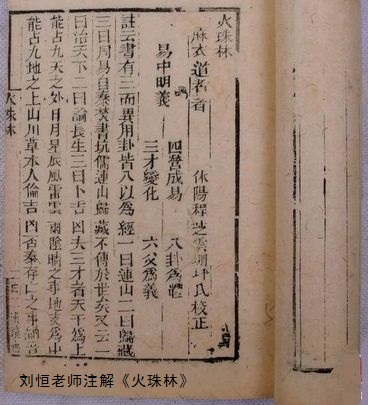 火珠林
麻衣道者著 休陽程芝雲瑚坪氏校正
四營成易 八卦為體
易中明義
三才變化 六爻為義
註云書有三而異用卦皆八以為經一曰連山二曰歸藏
三曰周易自秦焚書坑儒連山歸藏不傳於世矣又云一
曰治天下二曰論長生三曰卜吉凶夫三才者天為上
能占九天之外日月星辰風雷雲雨陰晴之事地支為中
能占九地之上山川草木人倫吉凶否泰存亡之事
火珠林
刘恒老师注解《火珠林》